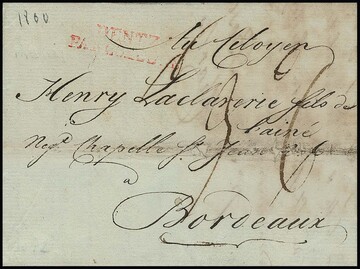 1800
Au Citoyen
Henry Laclaverie fils de
l'ainé
Negt. Chapelle St. Jean
à
Bordeaux